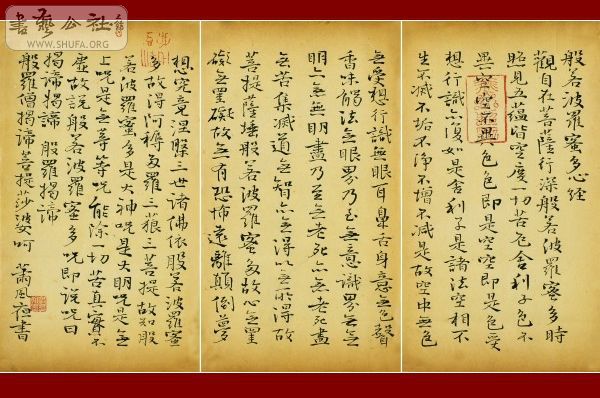 般若波羅蜜多心經
觀自在菩薩行深般若波羅蜜多時
照見五蘊皆空度一切苦厄舍利子色不
異空空不異色色即是空空即是色受
想行識亦復如是舍利子是諸法空相不
生不滅不垢不淨不增不減是故空中無色
無受想行識無眼耳鼻舌身意无色聲
香味觸法无眼界乃至无意識界无无
明亦無無明盡乃至无老死亦无老死盡
无苦集滅道无智亦无得以无所得故
菩提薩埵般若波羅蜜多故心无罣
礙无罣礙故无有恐怖遠離顛倒夢
想究竟涅槃三世諸佛依般若波羅蜜
多故得阿耨多羅三藐三菩提故知般
若波羅蜜多是大神呪是大明呪是无
上呪是无等等呪能除一切苦真實不
虛故說般若波羅蜜多呪即說呪曰
揭諦揭諦 般羅揭諦
般羅僧揭諦菩提莎婆呵 蕭風夜書
書藝公社
WWW.SHUFA.ORG